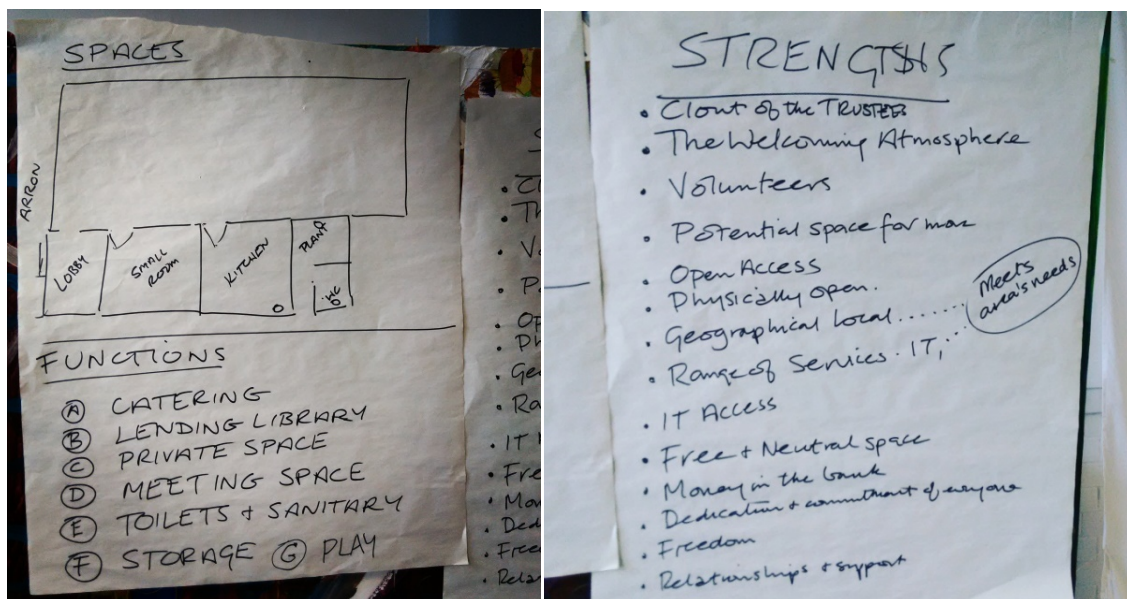 SPACES
ARRON
LOBBY
SMALL
ROOM
KITCHEN
PLANT
WC
FUNCTIONS
A CATERING
B LENDING LIBRARY
C PRIVATE SPACE
D MEETING SPACE
E TOILETS + SANITARY
F STORAGE G PLAY
STRENGTHS
• Clout of the TRUSTEES
• The Welcoming Atmosphere
• Volunteers
• Potential space for more
• Open Access
• Physically open.
• Geographical local........
• Range of Services. IT,
Meets
area's needs
• IT Access
• Free + Neutral space
• Money in the bank
• Dedication + commitment of everyone
• Freedom
• Relationships + support